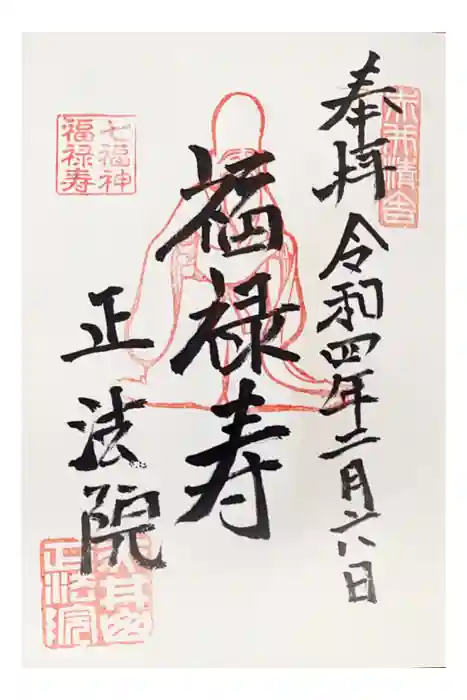 奉拝 令和四年二月六日
福禄寿
正法院
七福神
福禄寿